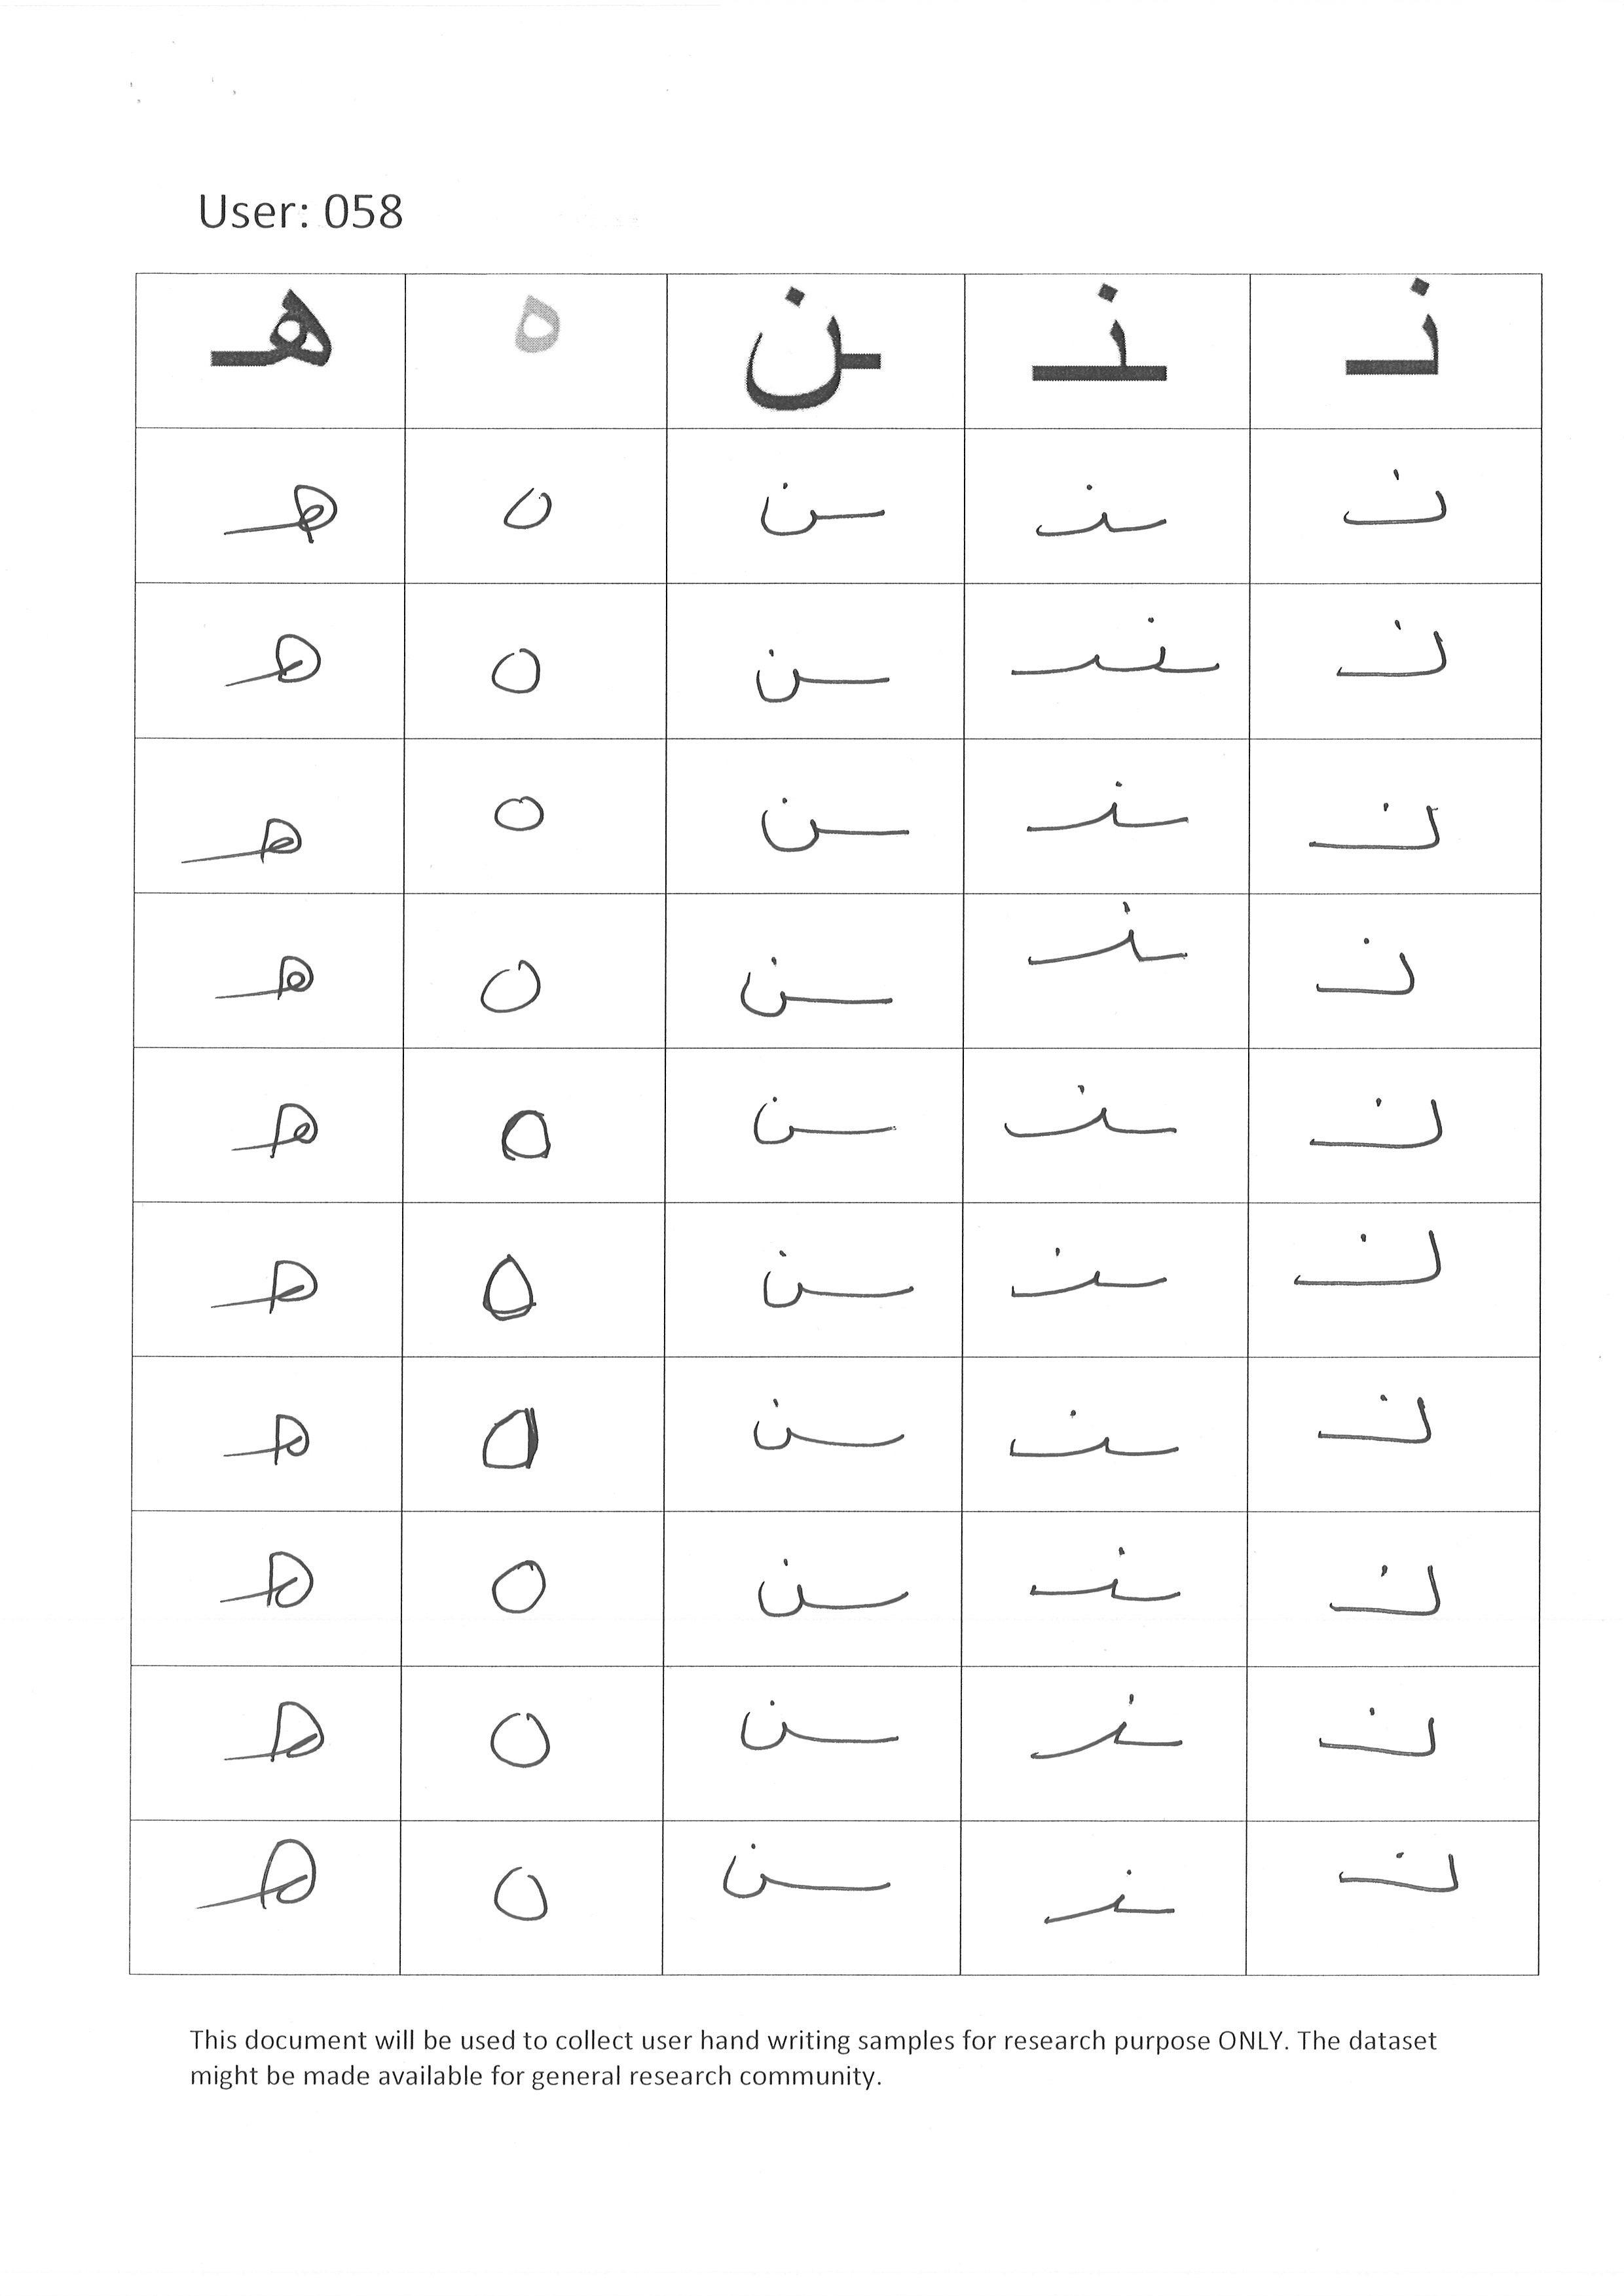 User: 058
نـ ـنـ ـن ه هـ
نـ ـنـ ـن ه هـ
نـ ـنـ ـن ه هـ
نـ ـنـ ـن ه هـ
نـ ـنـ ـن ه هـ
نـ ـنـ ـن ه هـ
نـ ـنـ ـن ه هـ
نـ ـنـ ـن ه هـ
نـ ـنـ ـن ه هـ
نـ ـنـ ـن ه هـ
نـ ـنـ ـن ه هـ
This document will be used to collect user hand writing samples for research purpose ONLY. The dataset
might be made available for general research community.